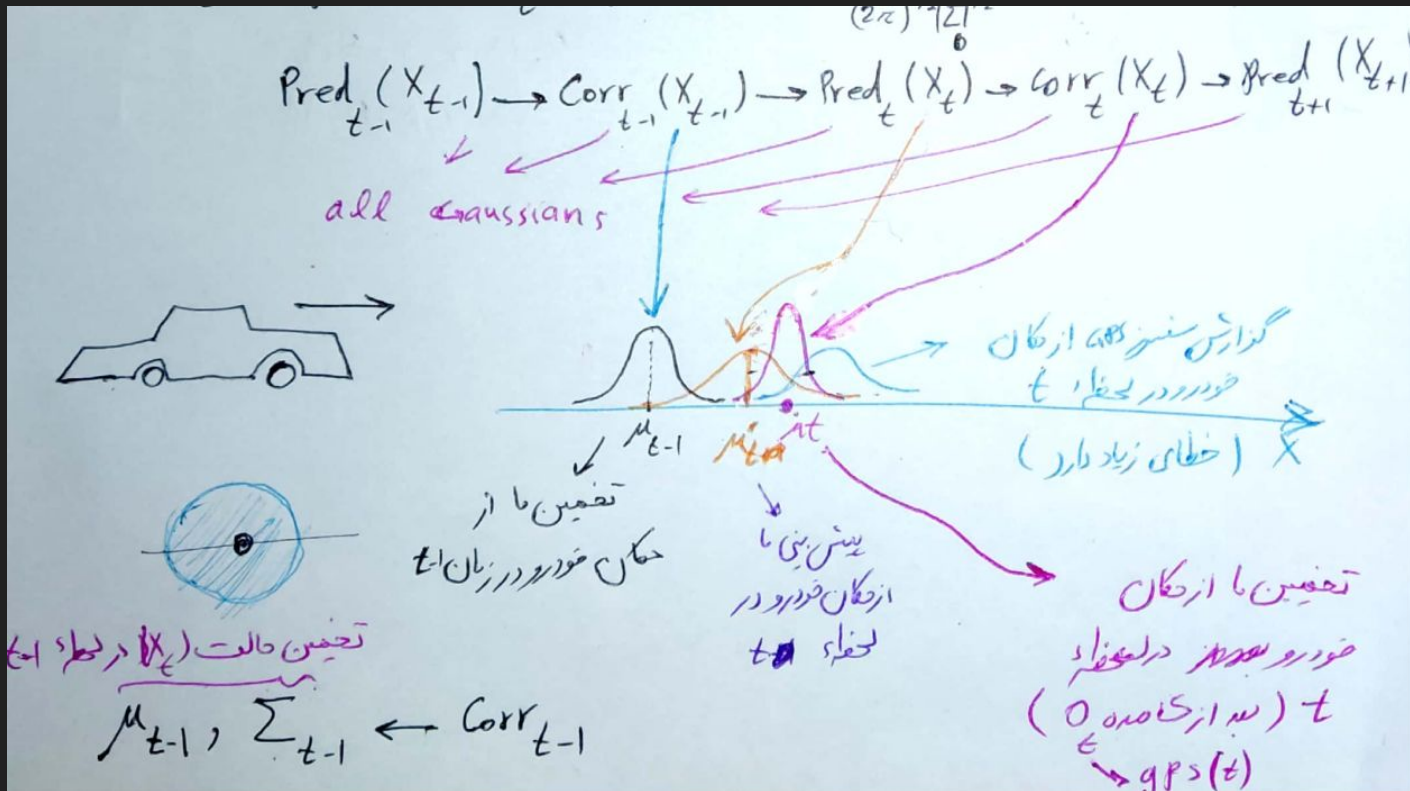 (2π) |Σ|
Pred_{t-1}(X_{t-1}) → Corr_{t-1}(X_{t-1}) → Pred_t(X_t) → Corr_t(X_t) → Pred_{t+1}(X_{t+1}
all Gaussians
گزارش سنسور GPS از مکان
خودرو در لحظهٔ t
(خطای زیاد دارد)
X
μ_{t-1}
μ_t
تخمین ما از
مکان خودرو در زمان t-1
پیش بینی ما
از مکان خودرو در
لحظهٔ t
تخمین ما از مکان
خودرو در لحظهٔ
t (بعد از مشاهده O_t)
gps(t)
تخمین حالت (X_t) در لحظهٔ t-1
μ_{t-1}, Σ_{t-1} ← Corr_{t-1}